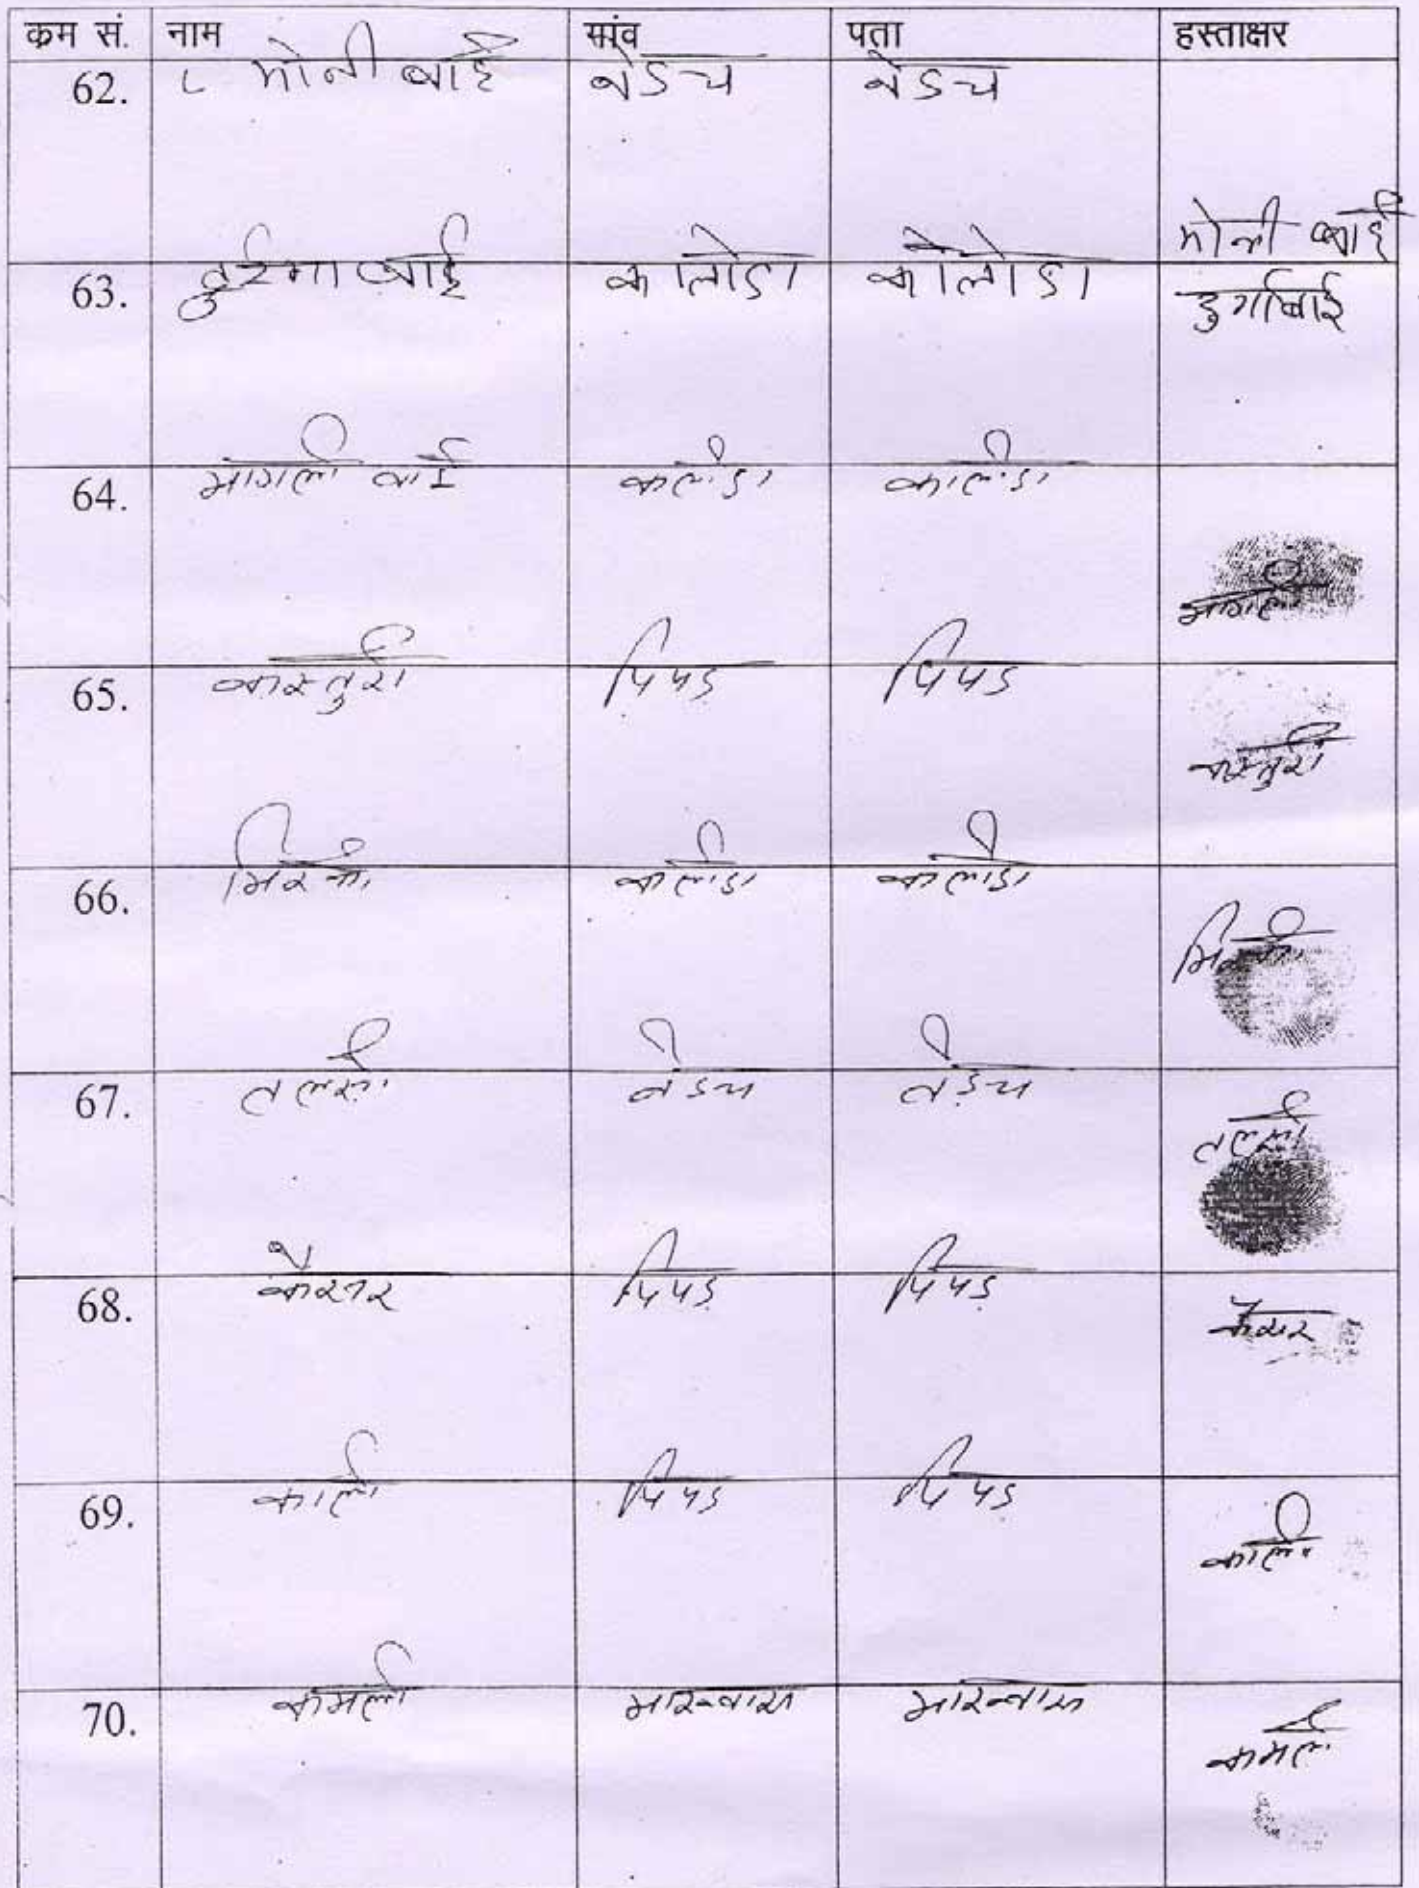 कम सं. नाम गांव पता हस्ताक्षर
62. मोनी बाई बेडच बेडच मोनी बाई
63. दुरगा बाई कालोडा कालोडा दुर्गाबाई
64. मांगली बाई कालोडा कालोडा मांगली
65. कस्तुरी पिपड पिपड कस्तुरी
66. कालोडा कालोडा
67. तलसी बेडच बेडच तलसी
68. केसर पिपड पिपड केसर
69. काली पिपड पिपड काली
70. कमली कमली